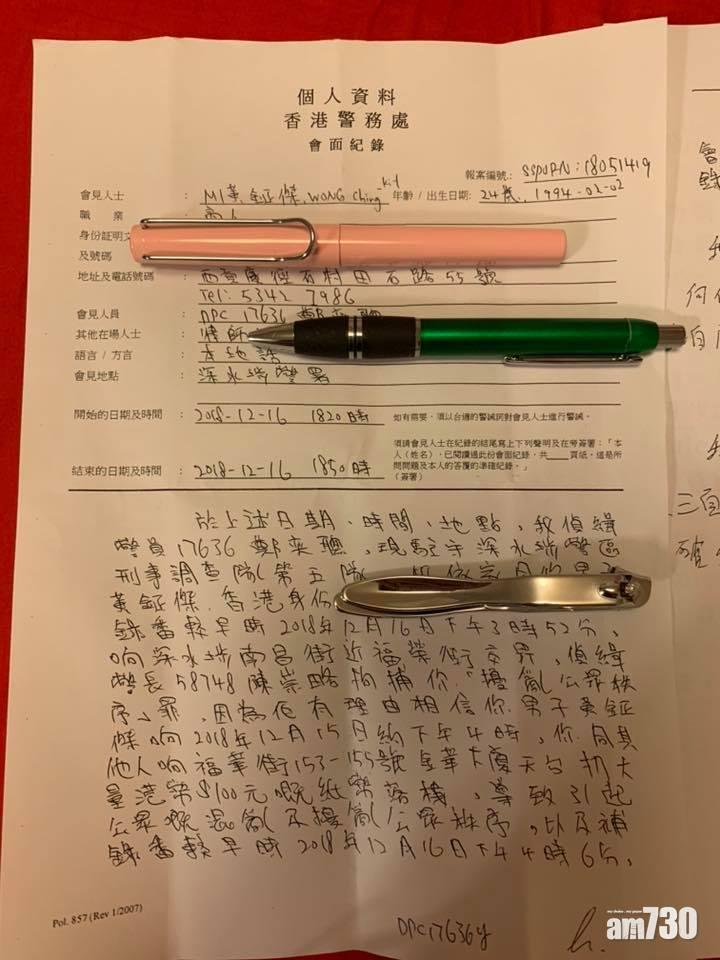 個人資料
香港警務處
會面紀錄
報案編號: SSPDRN: 18051419
會見人士 : M1黃鉦傑, WONG Ching-Kit 年齡 / 出生日期: 24歲, 1994-02-02
職業 : 商人
身份証明文
及號碼
地址及電話號碼 : 石村田石路55號
Tel: 5342 7986
會見人員 : DPC 17636
其他在場人士 : 律師
語言 / 方言 : 本地話
會見地點 : 深水埗警署
開始的日期及時間 : 2018-12-16 1820時 如有需要,須以合適的警誡詞對會見人士進行警誡。
須請會見人士在紀錄的結尾寫上下列聲明及在旁簽署:「本
人(姓名),已閱讀過此份會面紀錄,共____頁紙,這是所
問問題及本人的答覆的準確紀錄。」
(簽署)
結束的日期及時間 : 2018-12-16 1850時
於上述日期、時間、地點,我偵緝
警員17636 鄭奕聰,現駐守深水埗警區
刑事調查隊第五隊
黃鉦傑,香港身份
錄番較早時2018年12月16日下午3時52分,
响深水埗南昌街近福榮街交界,偵緝
警長58748 陳崇略拘捕你「擾亂公眾秩
序」罪,因為佢有理由相信你男子黃鉦
傑响2018年12月15日約下午4時,你同其
他人响福華街153-155號金華大廈天台扔大
量港幣$100元嘅紙幣落棧,導致引起
公眾嘅混亂及擾亂公眾秩序。以及補
錄番較早時2018年12月16日下午4時6分,
Pol. 857 (Rev 1/2007)
DPC17636
am730
會
錄
何
自
三頁
確